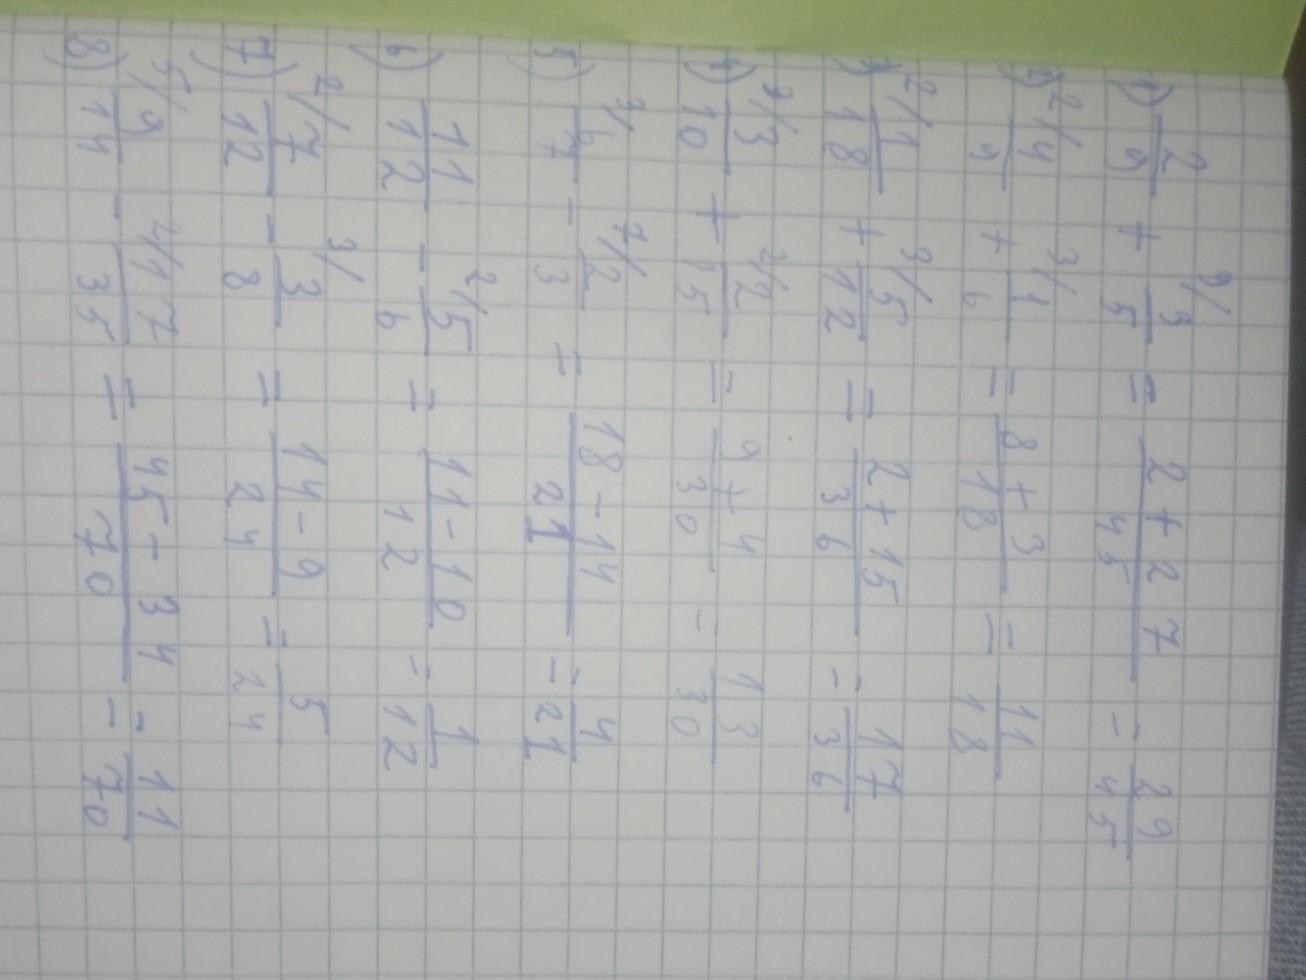 1) 2/9 + 9/ 3/5 = 2+27/45 = 29/45
2) 2/ 4/9 + 3/ 1/6 = 8+3/18 = 11/18
3) 2/ 1/18 + 3/ 5/12 = 2+15/36 = 17/36
4) 3/ 3/10 + 2/ 2/15 = 9+4/30 = 13/30
5) 3/ 6/7 - 7/ 2/3 = 18-14/21 = 4/21
6) 11/12 - 2/ 5/6 = 11-10/12 = 1/12
7) 2/ 7/12 - 3/ 3/8 = 14-9/24 = 5/24
8) 5/ 9/14 - 2/ 17/35 = 45-34/70 = 11/70